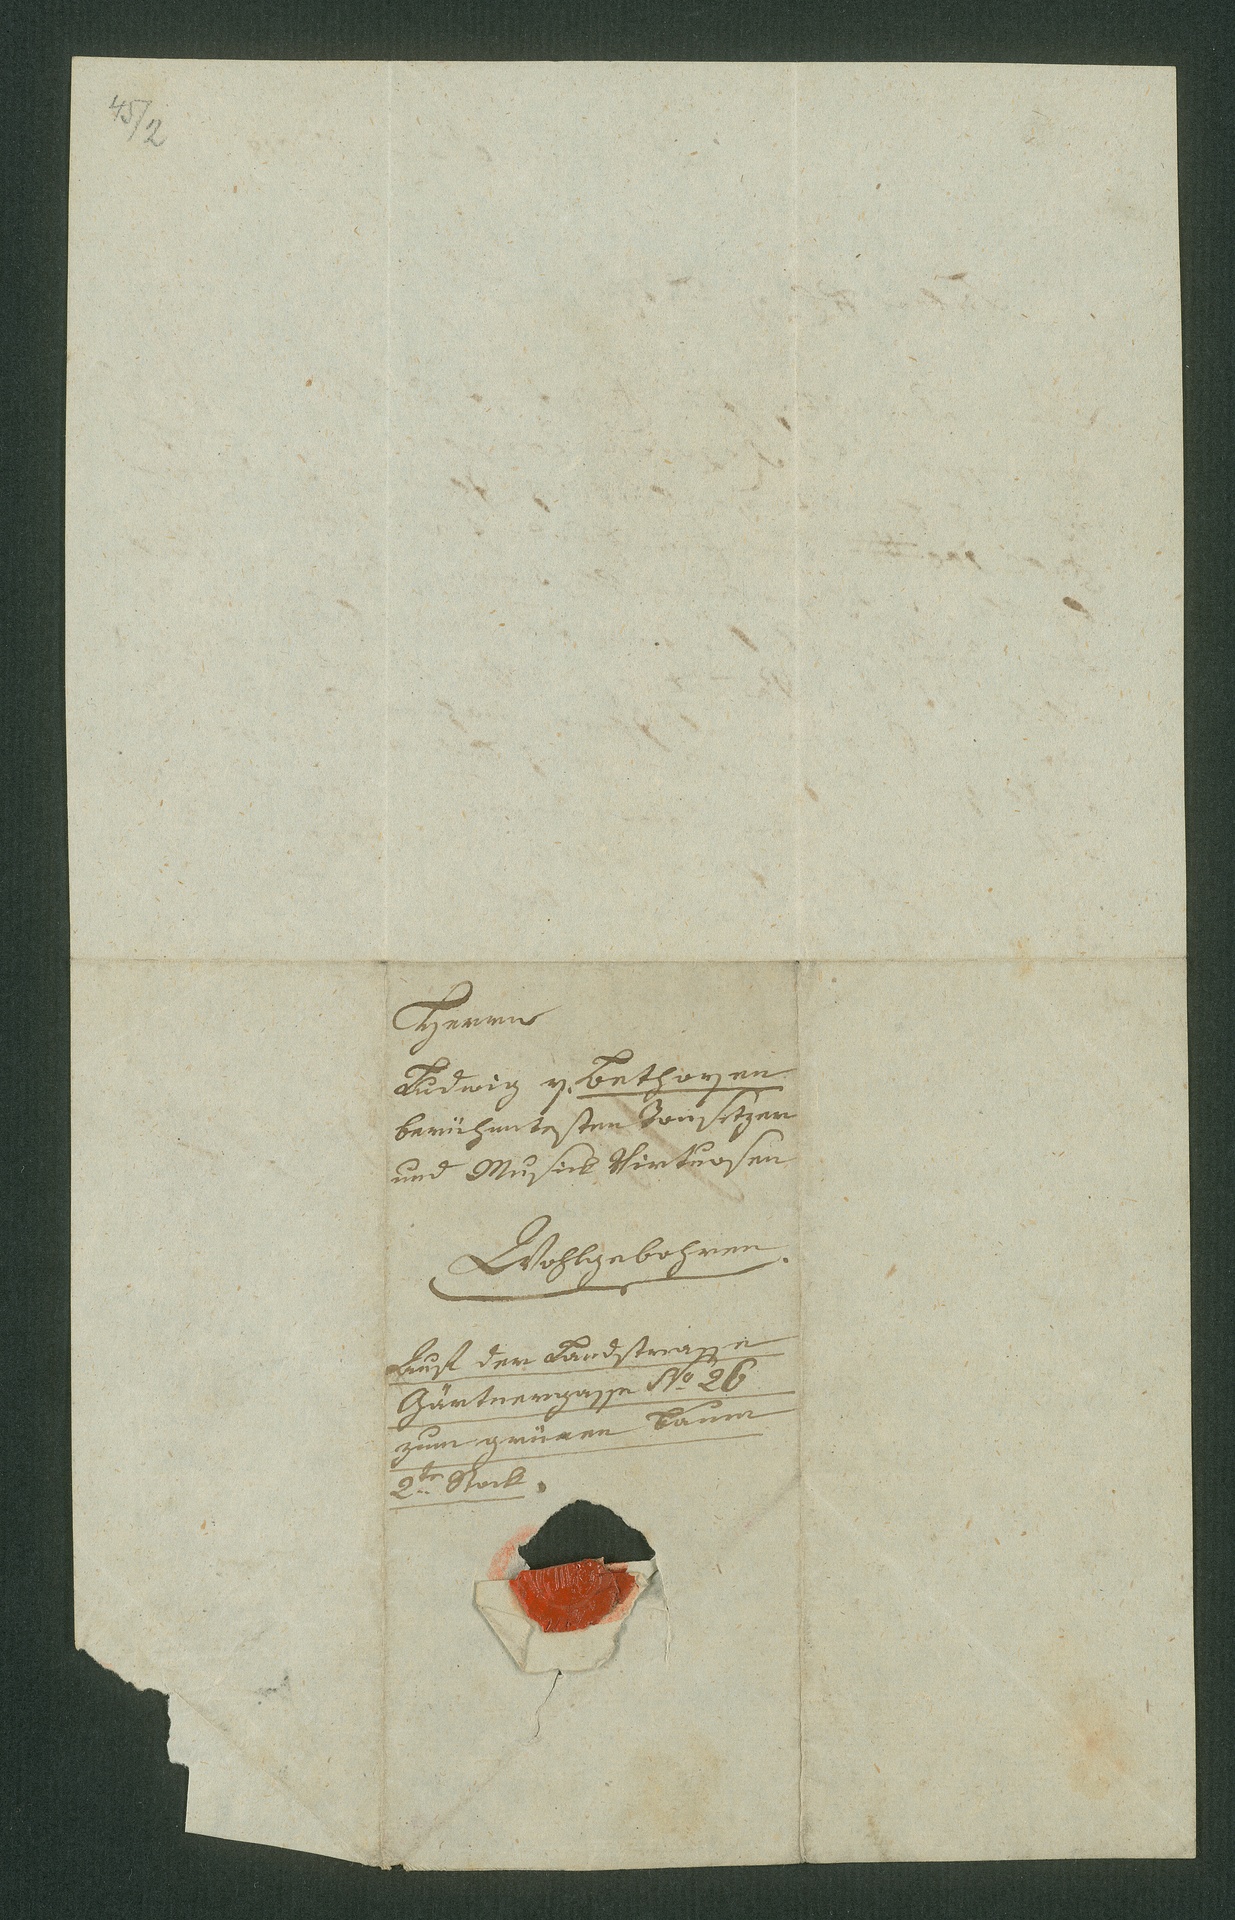 45/2
Herrn
Ludwig v. Bethoven
berühmtesten Tonsetzer
und Musick Virtuosen
Wohlgebohren.
Auf der Landstrasse
Gärtnergasse No 26
zum grünen Baum
2ten Stock.